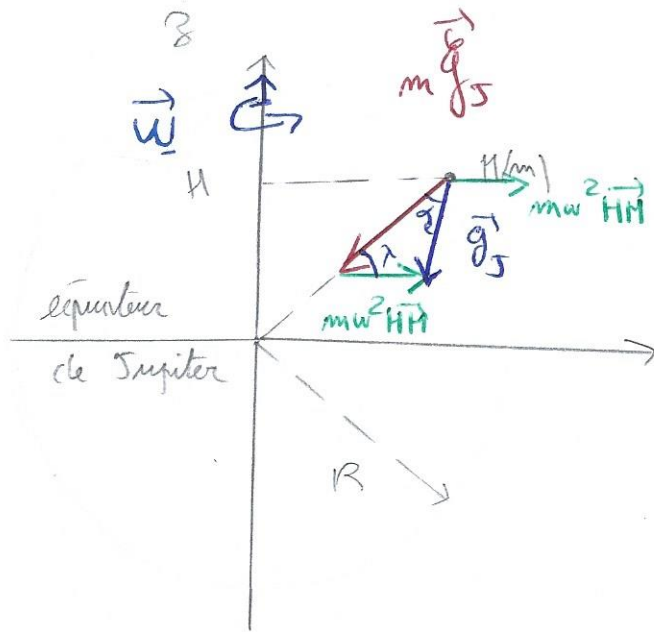 z
m G⃗_J
ω⃗
H
M(m)
mω² H⃗M
λ
g⃗_J
mω² H⃗M
équateur
de Jupiter
R